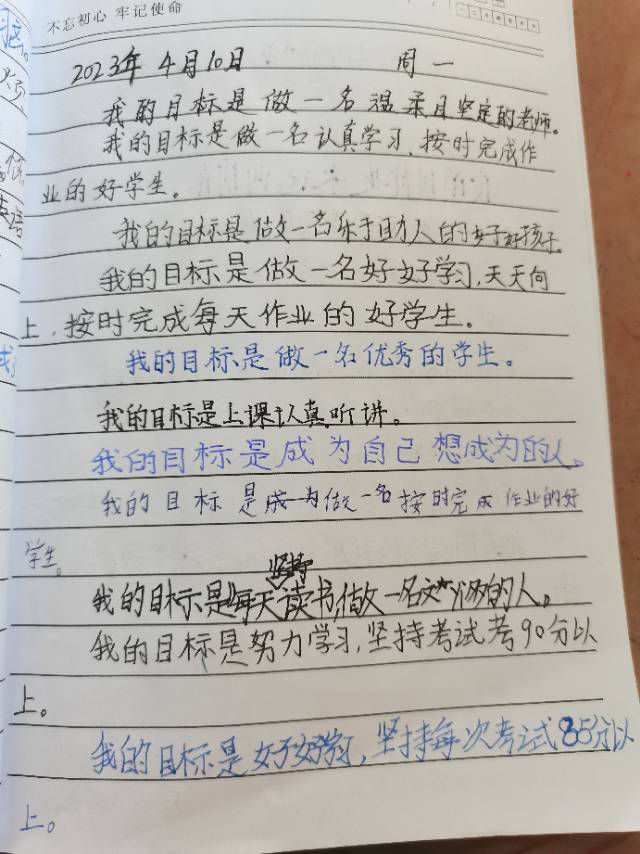 不忘初心 牢记使命
2023年4月10日 周一
我的目标是做一名温柔且坚定的老师。
我的目标是做一名认真学习、按时完成作
业的好学生。
我的目标是做一名乐于助人的好孩子。
我的目标是做一名好好学习,天天向
上,按时完成每天作业的好学生。
我的目标是做一名优秀的学生。
我的目标是上课认真听讲。
我的目标是成为自己想成为的人。
我的目标是做一名按时完成作业的好
学生。
坚持
我的目标是每天读书,做一名文的人。
我的目标是努力学习,坚持考试考90分以
上。
我的目标是好好学习,坚持每次考试85分以
上。